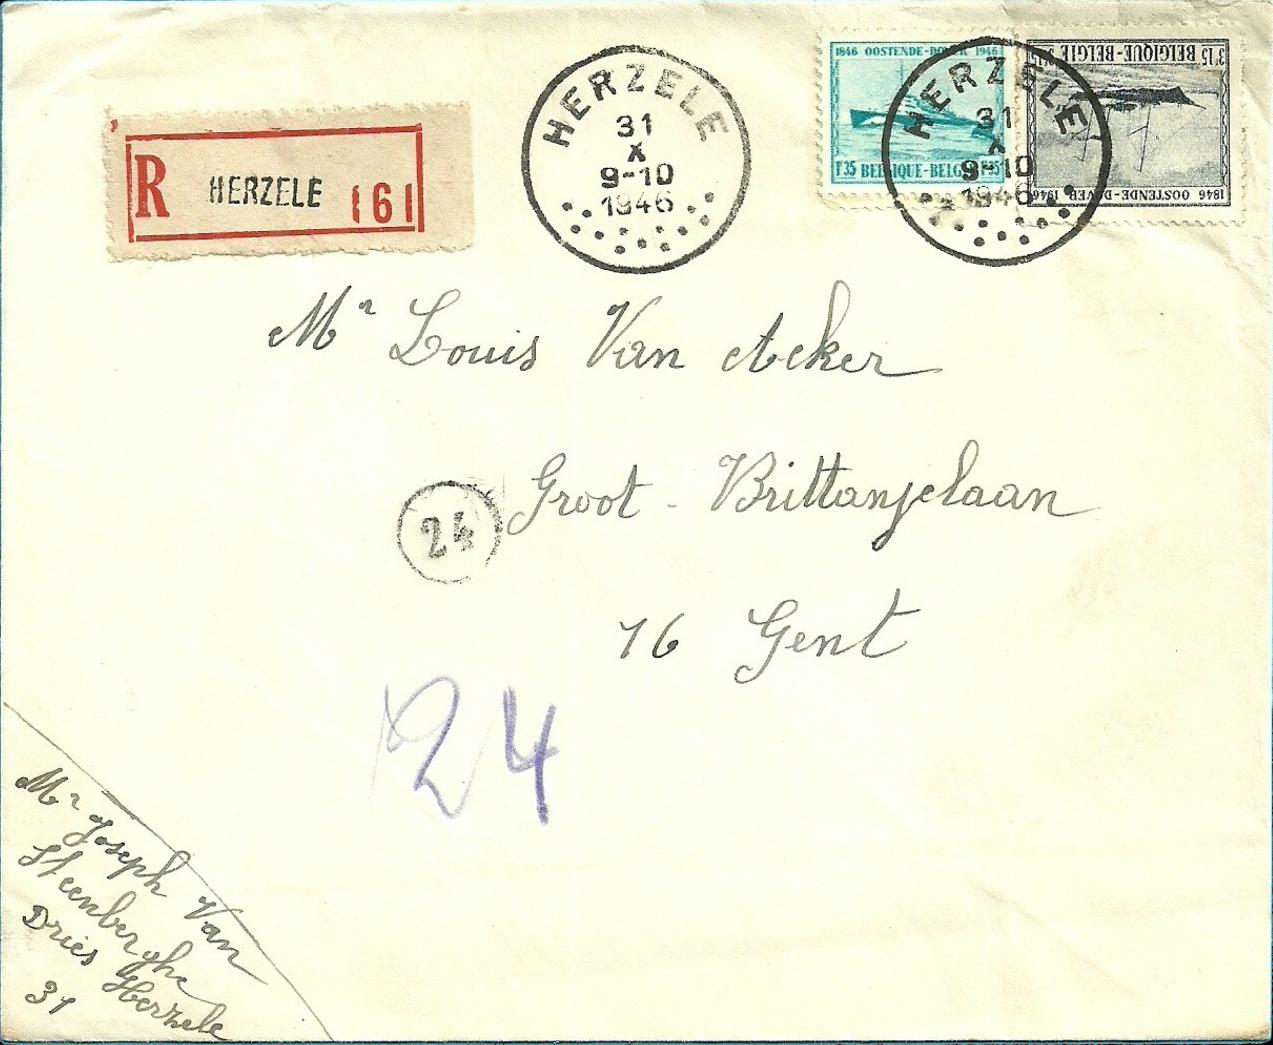 R HERZELE 161
HERZELE
31
X
9-10
1946
1846 OOSTENDE-DOVER 1946
1F35 BELGIQUE-BELGIE 1F35
3F15 BELGIQUE-BELGIE 3F15
1846 OOSTENDE-DOVER 1946
HERZELE
31
X
9-10
1946
Mr Louis Van Acker
Groot-Brittanjelaan
24
76 Gent
24
Mr Joseph Van
Steenberghe
Dries Herzele
31